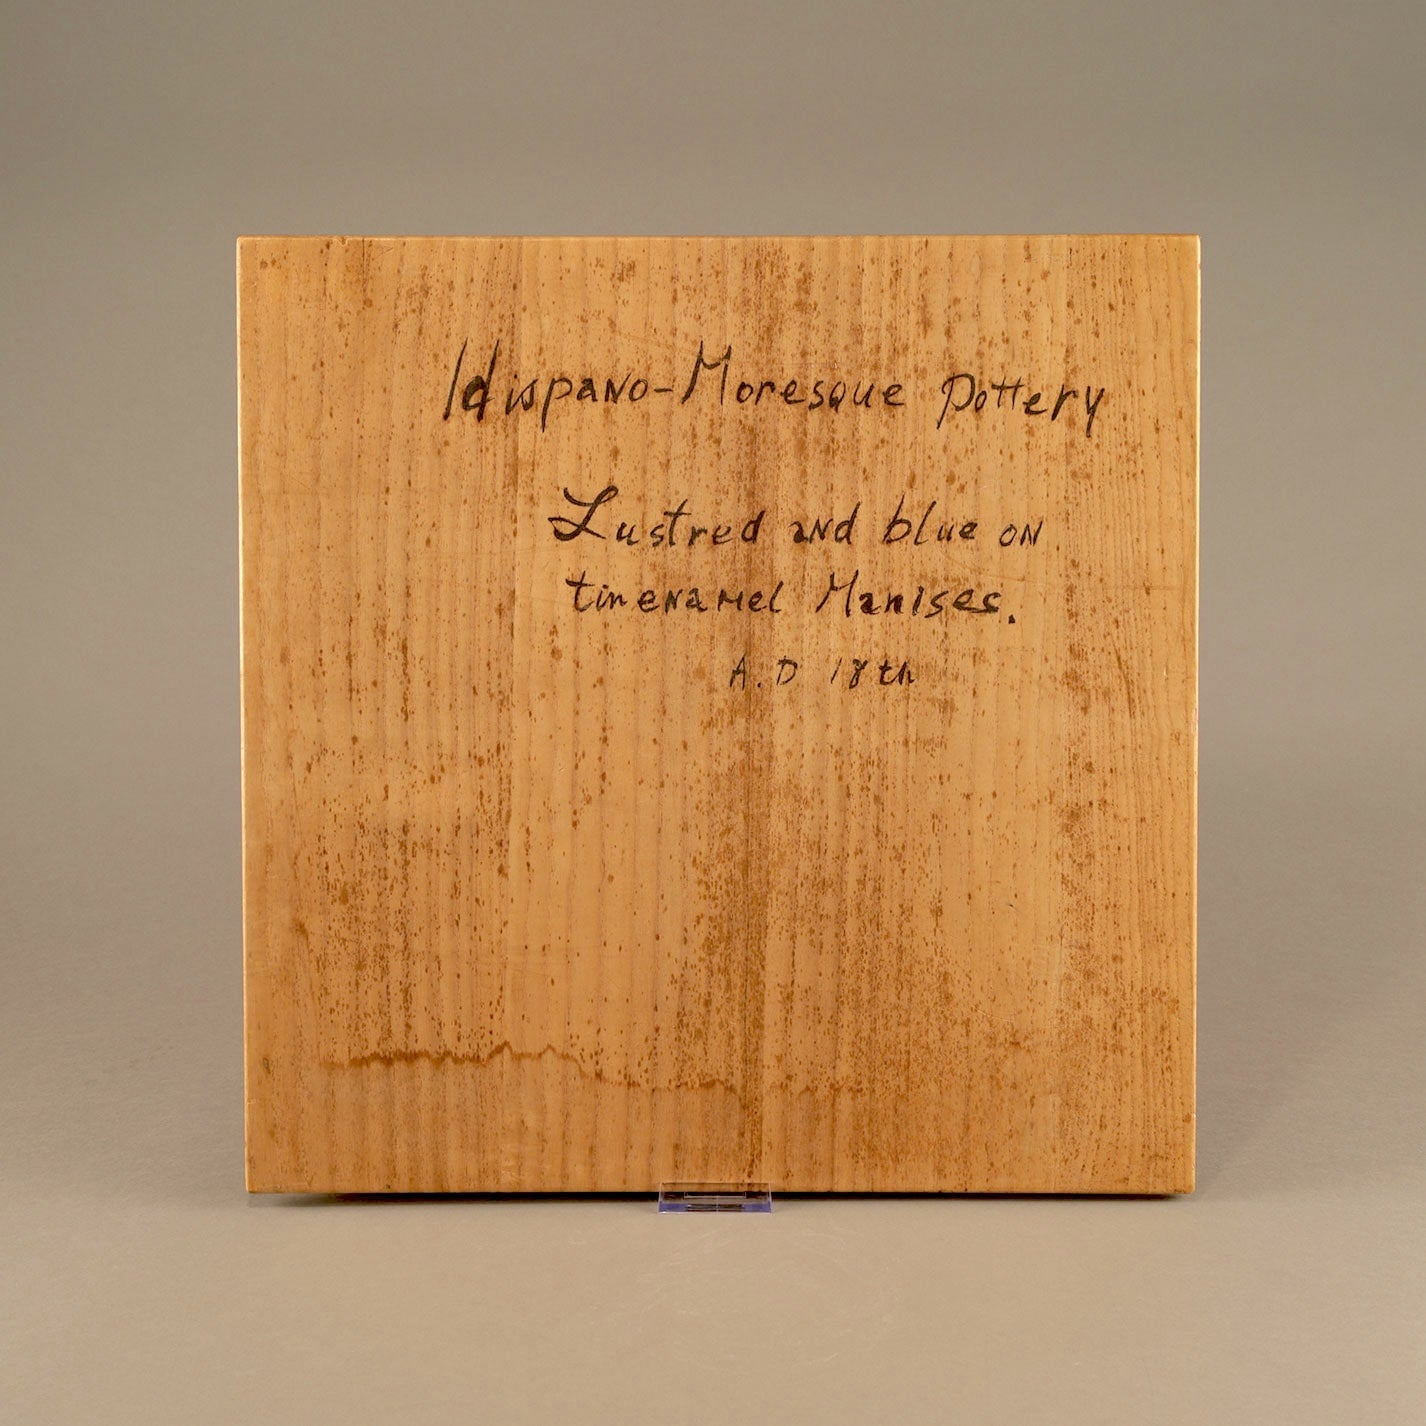 Hispano-Moresque Pottery
Lustred and blue on
tinenamel Manises.
A.D 18th